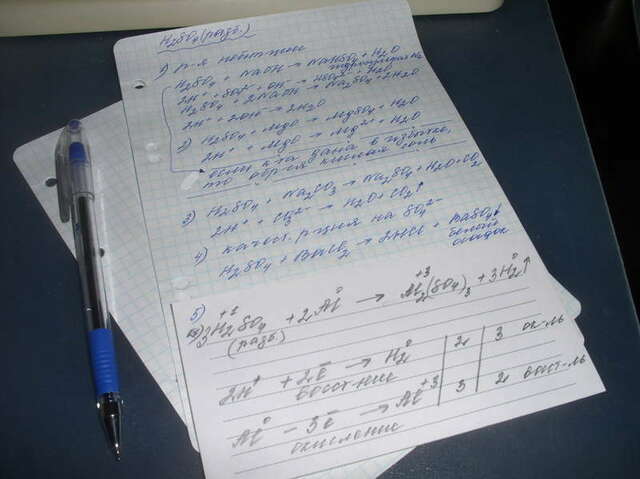 H₂SO₄ (разб.)
1) р-я нейтр-ции
H₂SO₄ + NaOH → NaHSO₄ + H₂O
2H⁺ + SO₄²⁻ + OH⁻ → HSO₄⁻ + H₂O
H₂SO₄ + 2NaOH → Na₂SO₄ + 2H₂O
2H⁺ + 2OH⁻ → 2H₂O
2) H₂SO₄ + MgO → MgSO₄ + H₂O
2H⁺ + MgO → Mg²⁺ + H₂O
если к-та дана в избытке,
то обр-ся кислая соль
3) H₂SO₄ + Na₂CO₃ → Na₂SO₄ + H₂O + CO₂↑
2H⁺ + CO₃²⁻ → H₂O + CO₂↑
4) качест. р-ция на SO₄²⁻
H₂SO₄ + BaCl₂ → 2HCl + BaSO₄↓
белый
осадок
5)
3H₂⁺¹SO₄ + 2Al⁰ → Al₂⁺³(SO₄)₃ + 3H₂⁰↑
(разб.)
2H⁺ + 2ē → H₂⁰ | 2 | 3 ок-ль
восст-ние
Al⁰ − 3ē → Al⁺³ | 3 | 2 вост-ль
окисление